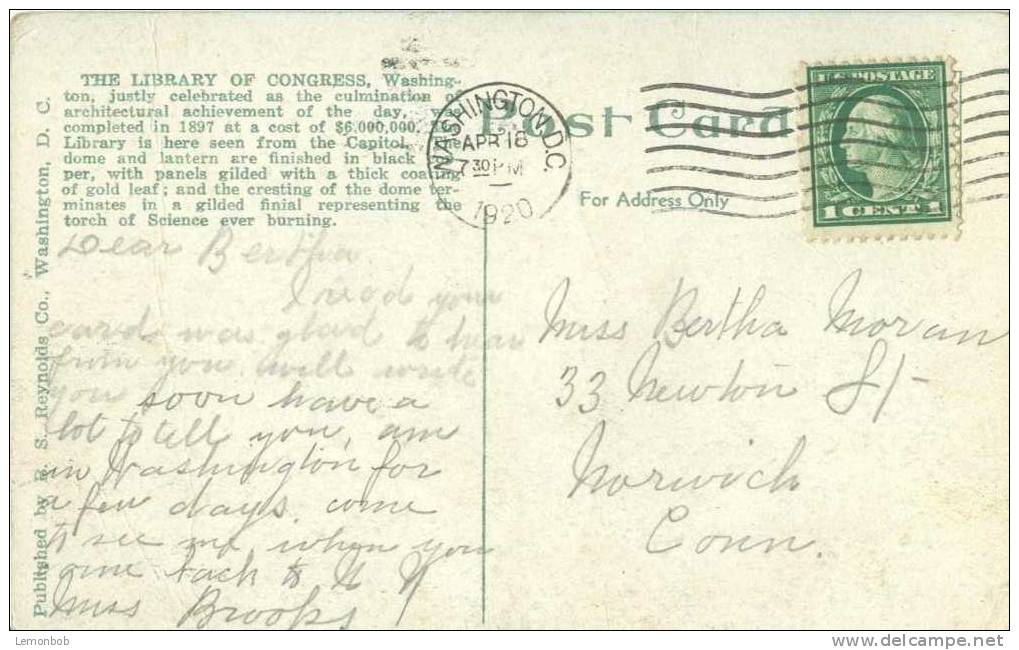 THE LIBRARY OF CONGRESS, Washing-
ton, justly celebrated as the culmination
architectural achievement of the day,
completed in 1897 at a cost of $6,000,000.
Library is here seen from the Capitol.
dome and lantern are finished in black
per, with panels gilded with a thick coating
of gold leaf; and the cresting of the dome ter-
minates in a gilded finial representing the
torch of Science ever burning.
Published by R. S. Reynolds Co., Washington, D. C.
WASHINGTON, D.C.
APR 18
7 30 PM
1920
Post Card
For Address Only
U.S. POSTAGE
1 CENT 1
Dear Bertha
I read your
card was glad to hear
from you will write
you soon have a
lot to tell you, am
in Washington for
a few days. come
to see me when you
come back to N Y
Miss Brooks
Miss Bertha Moran
33 Newton St
Norwich
Conn.
Lemonbob
delcampe.net